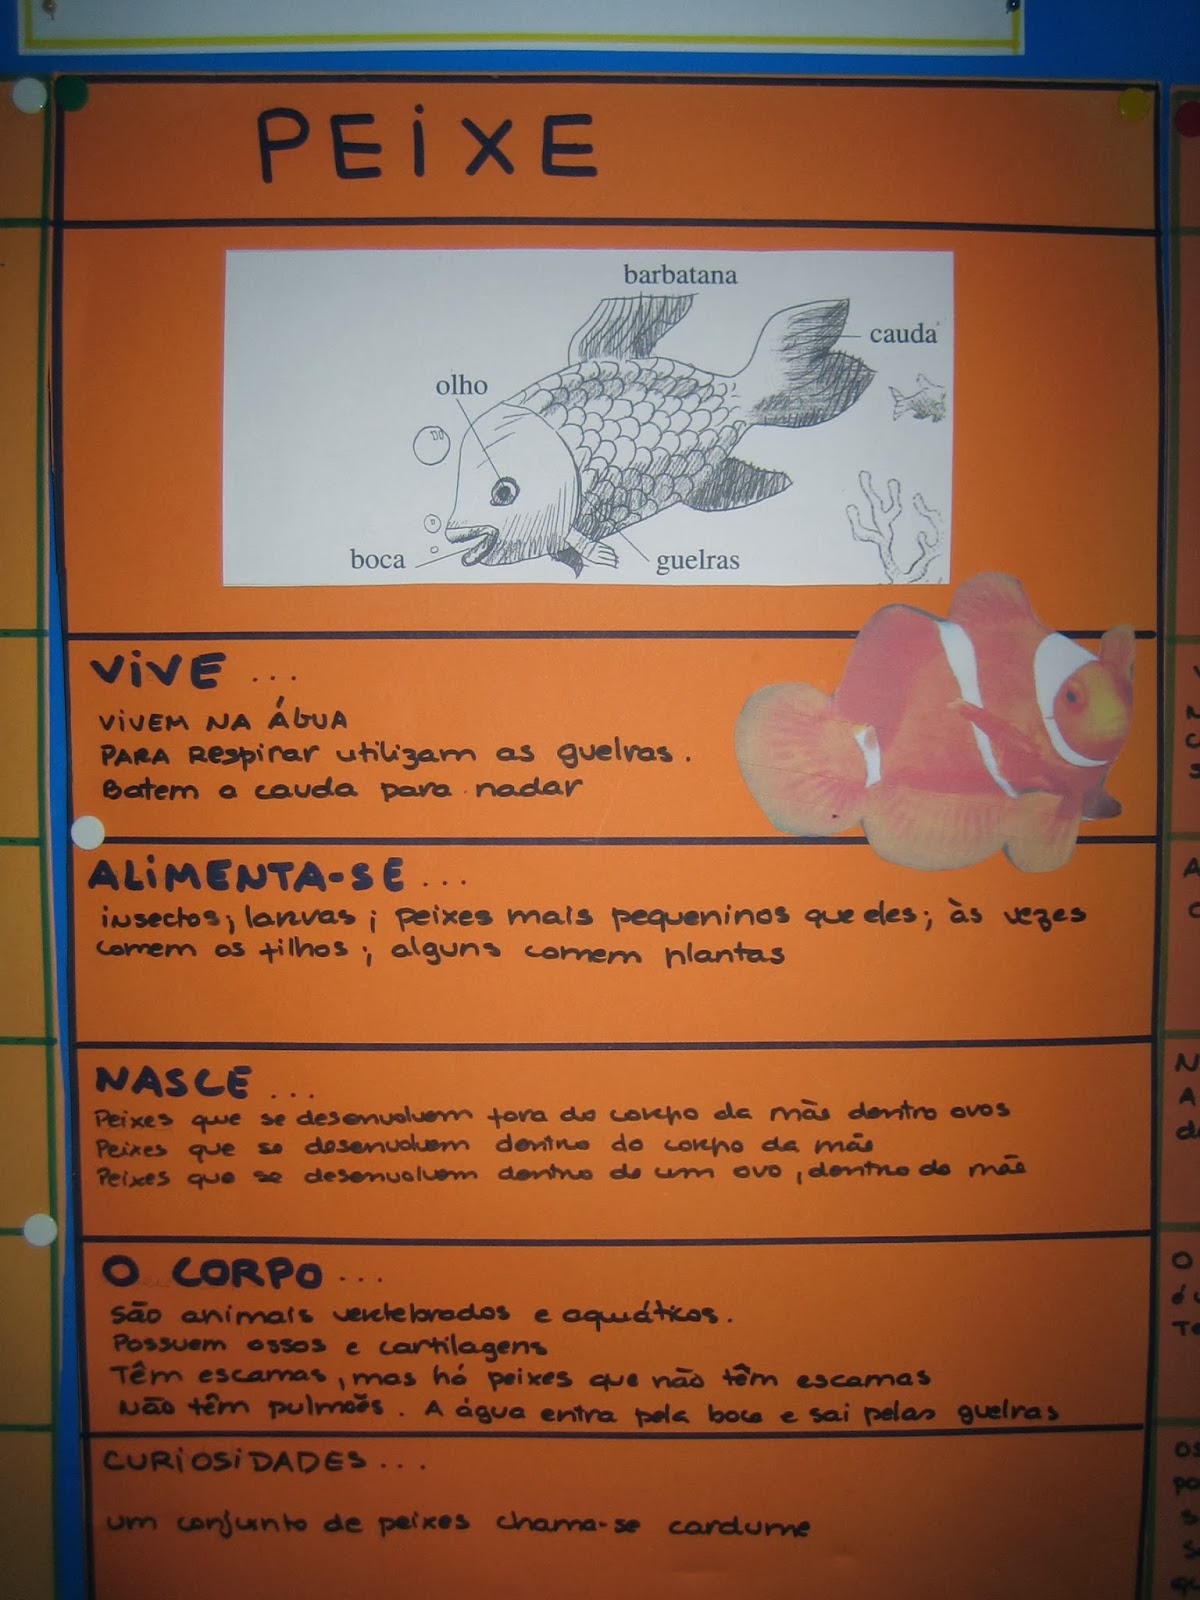 PEIXE
barbatana
cauda
olho
boca
guelras
VIVE ...
VIVEM NA ÁGUA
PARA Respirar utilizam as guelras.
Batem a cauda para nadar
ALIMENTA-SE ...
insectos; larvas; peixes mais pequeninos que eles; às vezes
comem os filhos; alguns comem plantas
NASCE ...
Peixes que se desenvolvem fora do corpo da mãe dentro ovos
Peixes que se desenvolvem dentro do corpo da mãe
Peixes que se desenvolvem dentro de um ovo, dentro da mãe
O CORPO ...
São animais vertebrados e aquáticos.
Possuem ossos e cartilagens
Têm escamas, mas há peixes que não têm escamas
Não têm pulmões. A água entra pela boca e sai pelas guelras
CURIOSIDADES ...
um conjunto de peixes chama-se cardume